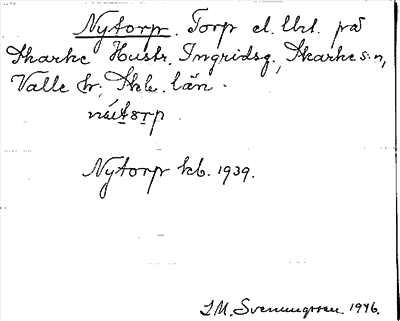 Nytorp. Torp el. lht. på
Skarke Hustr. Ingridsg., Skarke sn,
Valle hd, Skbg. län.
Nytorp kb. 1939.
I.M. Svenungsson. 1946.